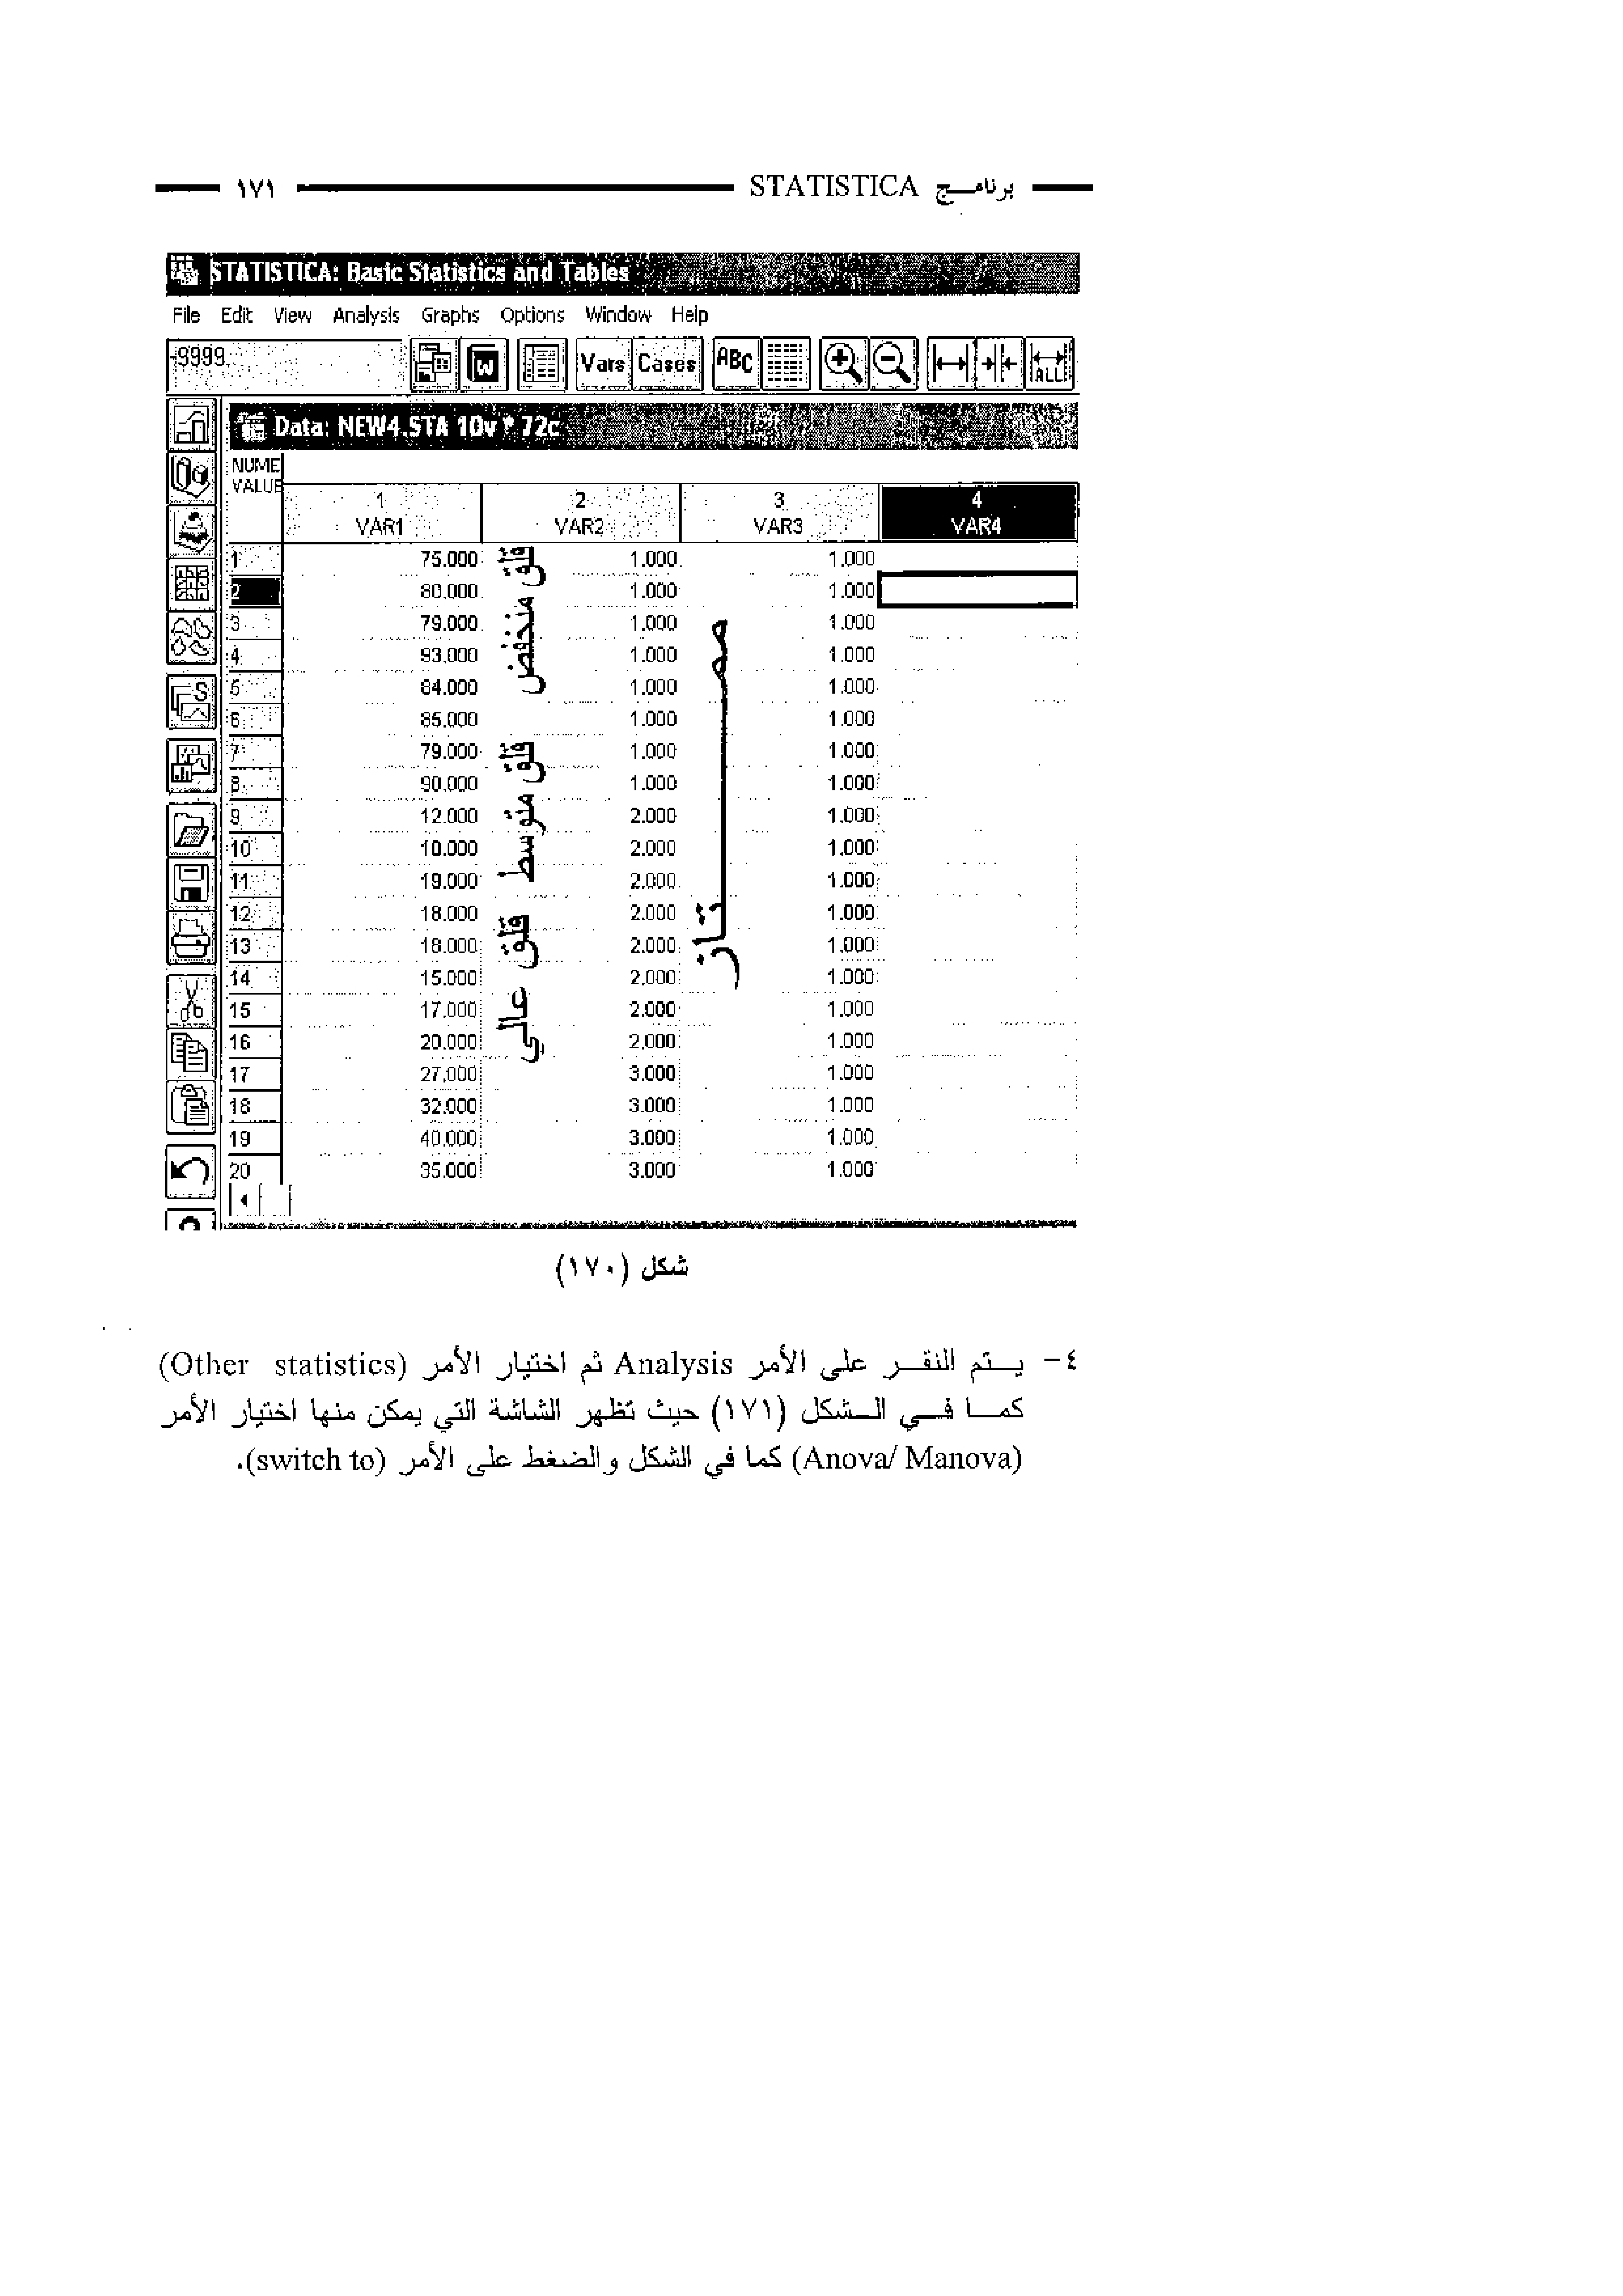 برنامج STATISTICA ١٧١
STATISTICA: Basic Statistics and Tables
File Edit View Analysis Graphs Options Window Help
-9999. Vars Cases ABC ALL
Data: NEW4.STA 10v * 72c
NUME
VALUE
1 2 3 4
VAR1 VAR2 VAR3 VAR4
1 75.000 1.000 1.000
2 80.000 1.000 1.000
3 79.000 1.000 1.000
4 93.000 1.000 1.000
5 84.000 1.000 1.000
6 85.000 1.000 1.000
7 79.000 1.000 1.000
8 90.000 1.000 1.000
9 12.000 2.000 1.000
10 10.000 2.000 1.000
11 19.000 2.000 1.000
12 18.000 2.000 1.000
13 18.000 2.000 1.000
14 15.000 2.000 1.000
15 17.000 2.000 1.000
16 20.000 2.000 1.000
17 27.000 3.000 1.000
18 32.000 3.000 1.000
19 40.000 3.000 1.000
20 35.000 3.000 1.000
قلق منخفض قلق متوسط قلق عالي
ممتاز
شكل (١٧٠)
٤- يتم النقر على الأمر Analysis ثم اختيار الأمر (Other statistics)
كما في الشكل (١٧١) حيث تظهر الشاشة التي يمكن منها اختيار الأمر
(Anova/ Manova) كما في الشكل والضغط على الأمر (switch to).